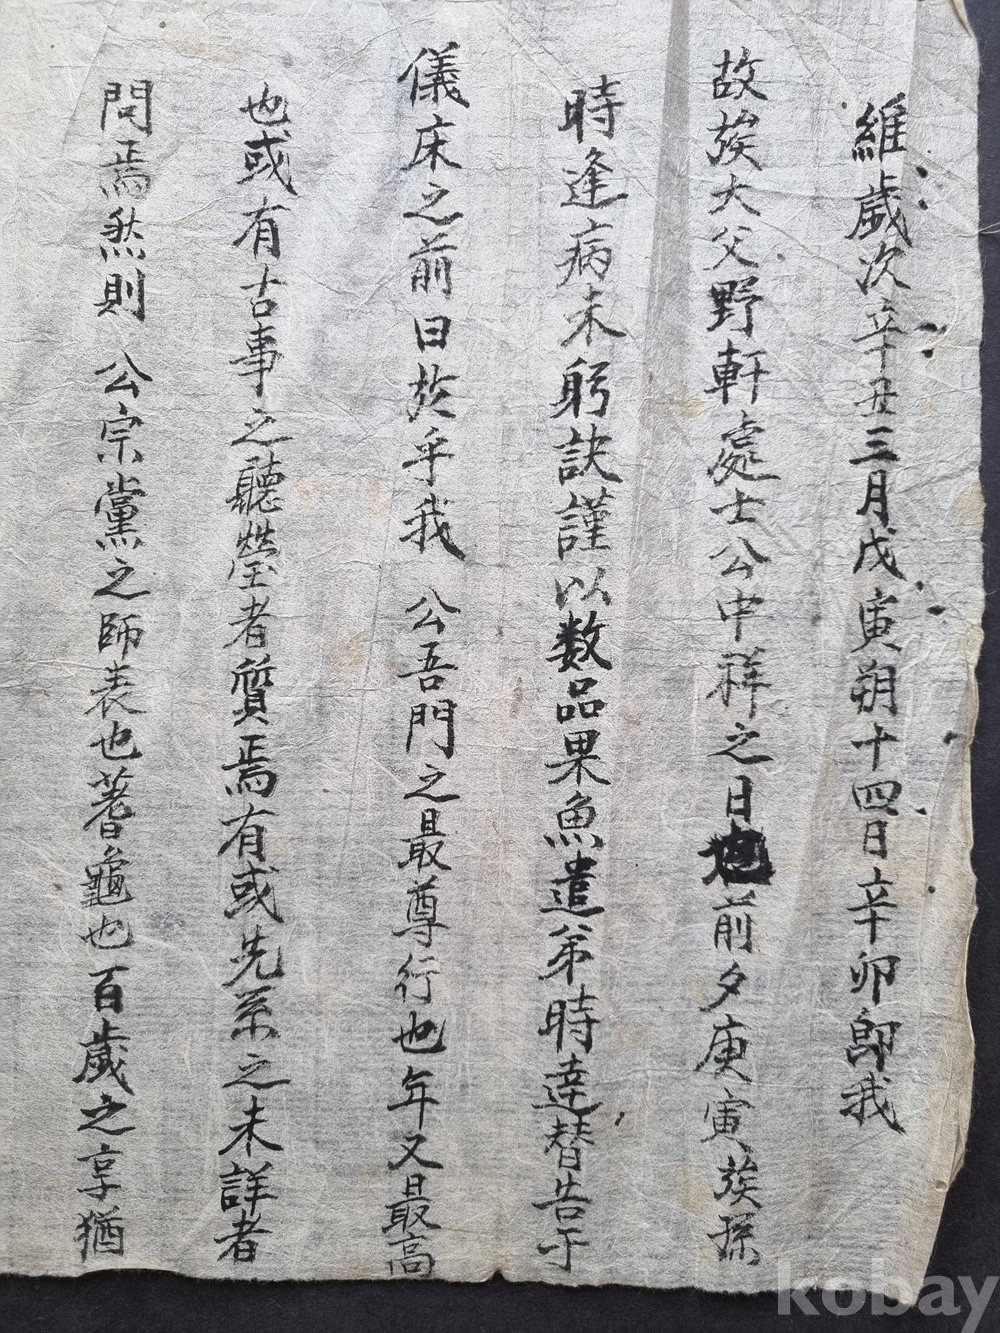 維歲次辛丑三月戊寅朔十四日辛卯卽我
故族大父野軒處士公中祥之日前夕庚寅族孫
時逢病未躬訣謹以数品果魚遣弟時達替告于
儀床之前曰於乎我 公吾門之最尊行也年又最高
也或有古事之聽瑩者質焉有或先系之未詳者
問焉然則 公宗黨之師表也蓍龜也百歲之享猶
kobay